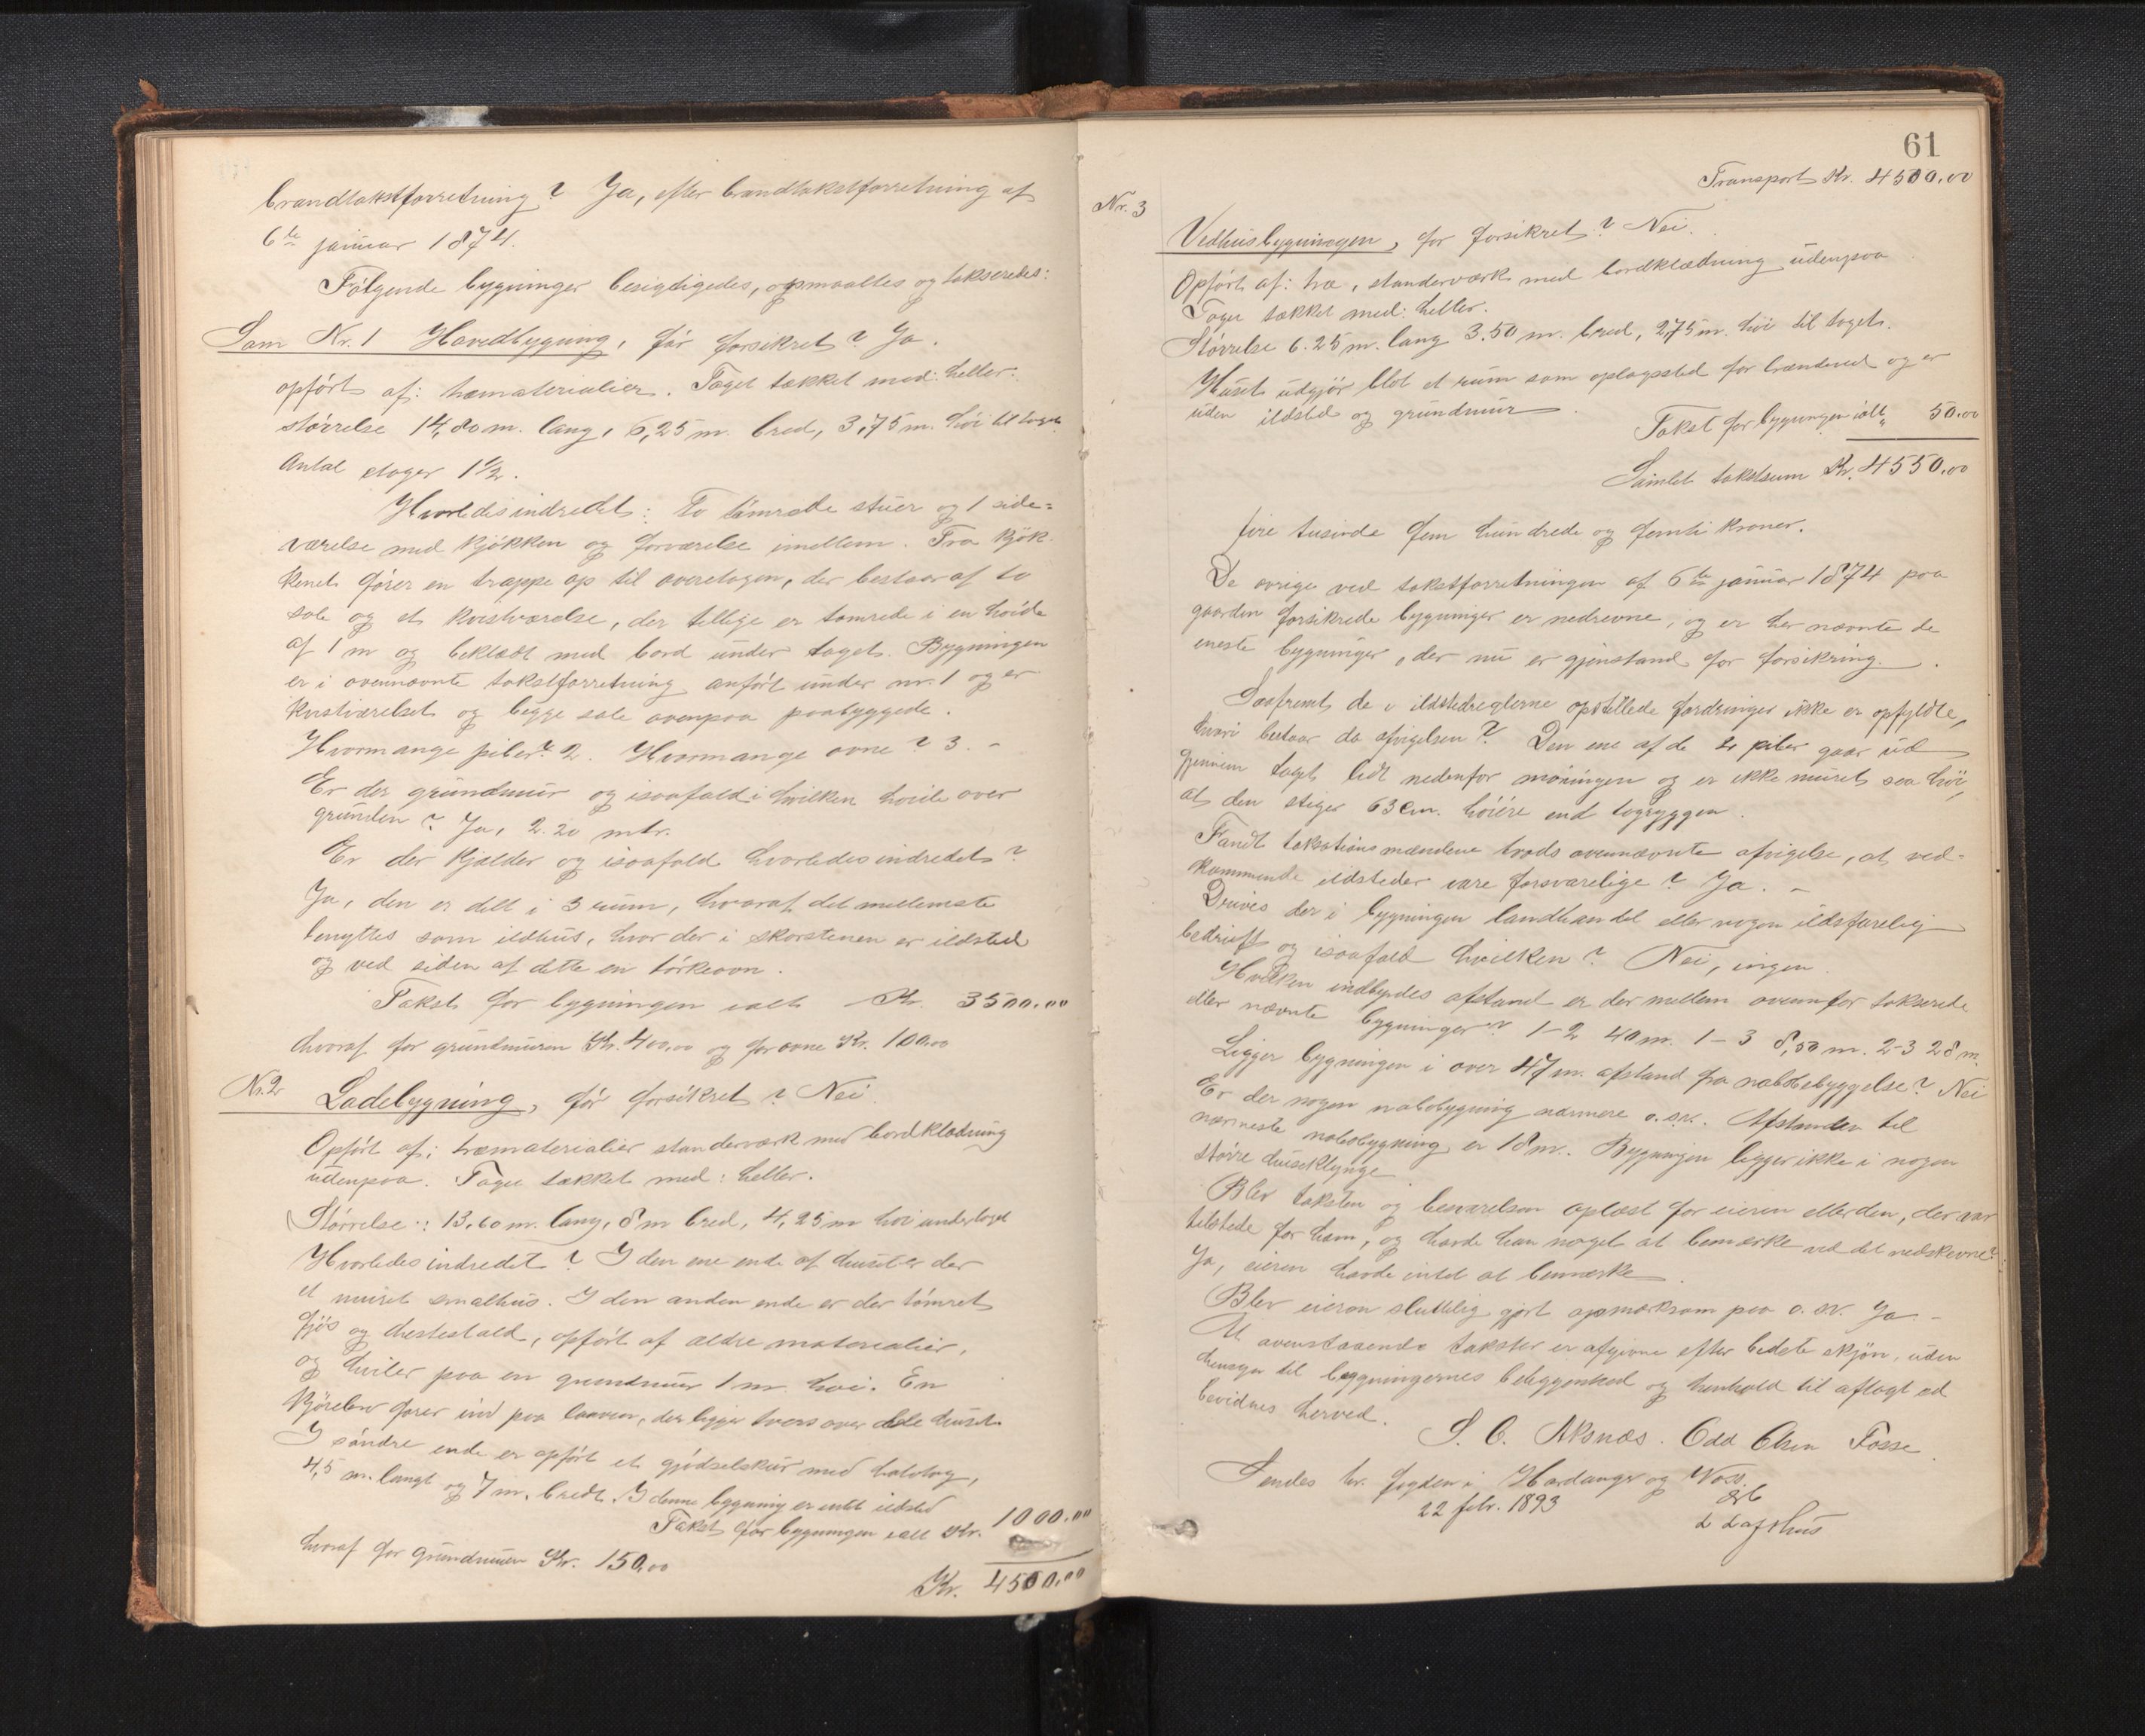 brandtakstforretning? Ja, efter brandtakstforretning af
6te januar 1874.
Følgende bygninger besigtigedes, opmaaltes og takseredes:
Som Nr. 1 Hovedbygning, før forsikret? Ja.
opført af: træmaterialier. Taget tækket med: heller.
størrelse 14,80 m. lang, 6,25 m. bred, 3,75 m. høi til taget
Antal etager 1 1/2.
Hvorledes indredet: to tømrede stuer og 1 side-
værelse med kjøkken og forværelse imellem. Fra kjøk-
kenet fører en trappe op til overetagen, der bestaar af to
sale og et kvistværelse, der tillige er tømrede i en høide
af 1 m og beklædt med bord under taget. Bygningen
er i ovennævnte takstforretning anført under nr. 1 og er
kvistværelset og begge sale ovenpaa paabyggede.
Hvormange piber? 2. Hvormange ovne? 3. –
Er der grundmur og isaafald i hvilken høide over
grunden? Ja, 2.20 mtr.
Er der kjælder og isaafald hvorledes indredet?
Ja, den er delt i 3 rum, hvoraf det mellemste
benyttes som ildhus, hvor der i skorstenen er ildsted
og ved siden af dette en tørkeovn.
Takst for bygningen ialt Kr. 3500.00
hvoraf for grundmuren Kr. 400,00 og for ovne Kr. 100.00
Nr. 2 Ladebygning, før forsikret? Nei.
Opført af: træmaterialier standerværk med bordklædning
udenpaa. Taget tækket med: heller.
Størrelse: 13,60 m. lang, 8 m bred, 4,25 m høi under taget
Hvorledes indredet? I den ene ende af huset er der
et muret smalhus. I den anden ende er der tømret
fjøs og hestestald, opført af ældre materialier,
og hviler paa en grundmur 1 m. høi. En
kjørebro fører ind paa laaven, der ligger tvers over dele huset.
I søndre ende er opført et gjødselskur med halvtag,
4,5 m. langt og 7 m. bredt. I denne bygning er intet ildsted
Takst for bygningen ialt Kr. 1000.00
hvoraf for grundmuren Kr. 150,00
Kr. 4500.00
61
Transport Kr. 4500.00
Nr. 3
Vedhusbygningen, før forsikret? Nei.
Opført af: træ, standerværk med bordklædning udenpaa
Taget tækket med: heller.
Størrelse 6.25 m. lang 3.50 m. bred, 2,75 m. høi til taget.
Huset udgjør blot et rum som oplagssted for brændeved og er
uden ildsted og grundmur.
Takst for bygningen ialt „ 50.00
Samlet takstsum Kr. 4550.00
fire tusinde fem hundrede og femti kroner.
De øvrige ved takstforretningen af 6te januar 1874 paa
gaarden forsikrede bygninger er nedrevne, og er her nævnte de
eneste bygninger, der nu er gjenstand for forsikring.
Saafremt de i ildstedreglerne opstillede fordringer ikke er opfyldte,
hvori bestaar da afvigelsen? Den ene af de 2 piber gaar ud
gjennem taget lidt nedenfor møningen og er ikke muret saa høi,
at den stiger 63 cm. høiere end tagryggen.
Fandt taksationsmændene trods ovennævnte afvigelse, at ved-
kommende ildsteder vare forsvarelige? Ja. –
Drives der i bygningen landhandel eller nogen ildsfarelig
bedrift og isaafald hvilken? Nei, ingen
Hvilken indbyrdes afstand er der mellem ovennfor takserede
eller nævnte bygninger? 1–2 40 m. 1–3 8,50 m. 2–3 28 m.
Ligger bygningen i over 47 m. afstand fra nabobebyggelse? Nei
Er der nogen nabobygning nærmere o.s.v. Afstanden til
nærmeste nabobygning er 18 m. Bygningen ligger ikke i nogen
større huseklynge
Blev taksten og besvarelsen oplæst for eieren eller den, der var
tilstede for ham, og havde han noget at bemærke ved det nedskrevne?
Ja, eieren havde intet at bemærke.
Blev eieren sluttelig gjort opmærksom paa o.s.v. Ja. –
At ovenstaaende takster er afgivne efter bedste skjøn, uden
hensyn til bygningernes beliggenhed og henhold til aflagt ed
bevidnes herved.
S. O. Aksnæs. Odd Olsen Fosse.
Sendes hr. fogden i Hardanger og Voss.
22 febr. 1893
L Lofthus